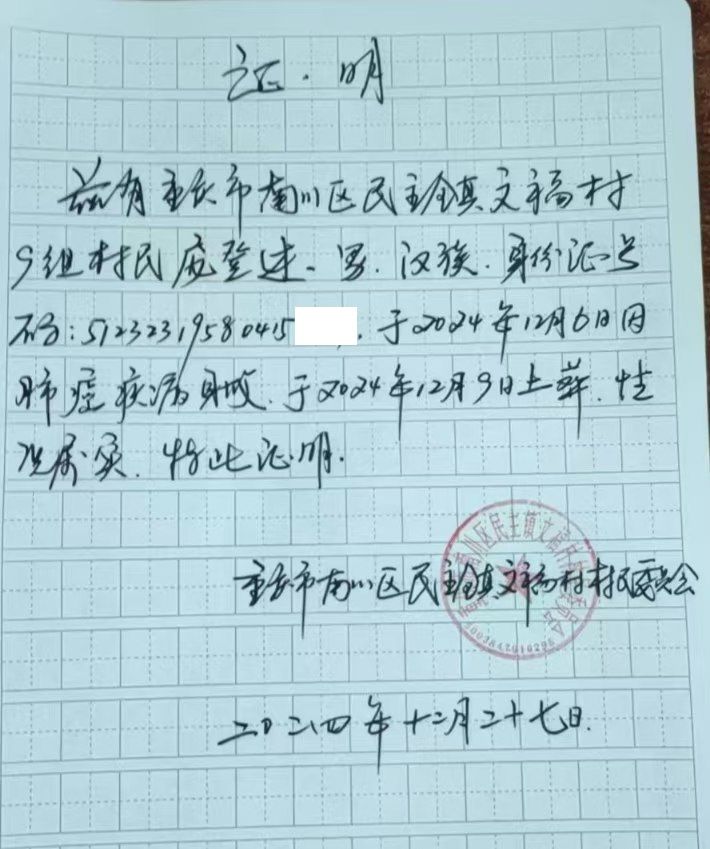 证.明
兹有重庆市南川区民主镇文福村
9组村民庞登述、男、汉族、身份证号
码:51232319580415 . 于2024年12月6日因
肺癌疾病身故、于2024年12月9日土葬、情
况属实、特此证明.
重庆市南川区民主镇文福村村民委员会
二〇二四年十二月二十七日.